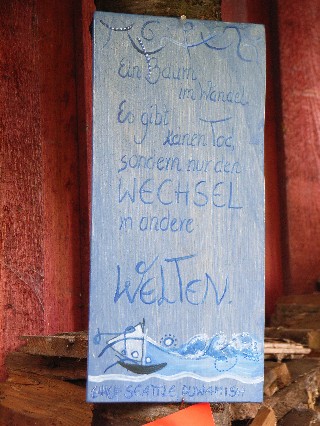 Ein Baum
im Wandel.
Es gibt
keinen Tod,
sondern nur den
WECHSEL
in andere
WELTEN.
SEATTLE DUWAMISH